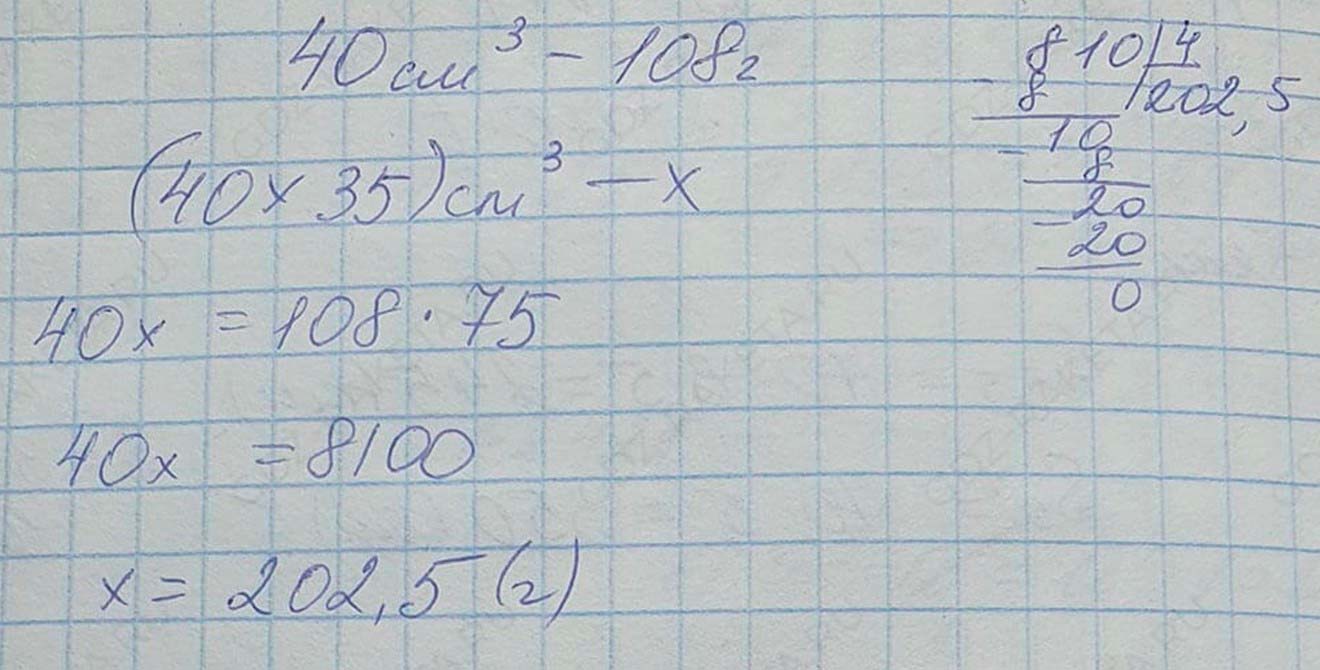 40 см³ - 108 г
(40 х 35) см³ - х
40х = 108 · 75
40х = 8100
х = 202,5 (г)
810 | 4
- 8 | 202,5
- 10
8
- 20
20
0